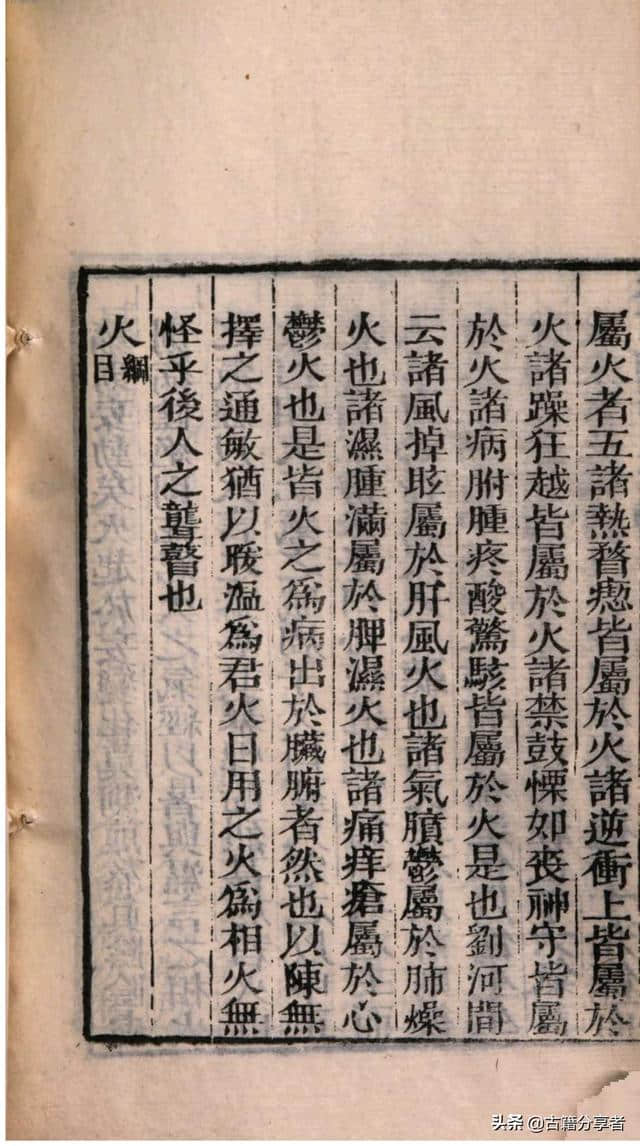 屬火者五諸熱瞀瘛皆屬於火諸逆衝上皆屬於
火諸躁狂越皆屬於火諸禁鼓慄如喪神守皆屬
於火諸病胕腫疼酸驚駭皆屬於火是也劉河間
云諸風掉眩屬於肝風火也諸氣膹鬱屬於肺燥
火也諸濕腫滿屬於脾濕火也諸痛痒瘡屬於心
鬱火也是皆火之爲病出於臟腑者然也以陳無
擇之通敏猶以暖溫爲君火日用之火爲相火無
怪乎後人之聾瞽也
火綱目
头条 @古籍分享者